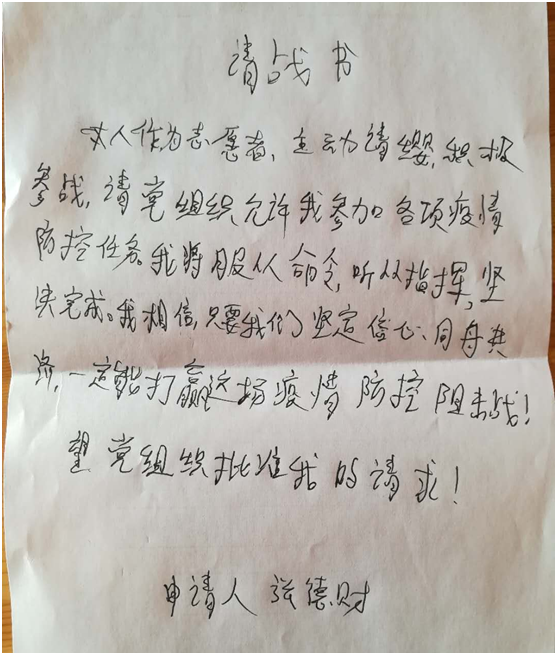 请战书
本人作为志愿者，主动请缨，积极
参战，请党组织允许我参加各项疫情
防控任务。我将服从命令，听从指挥，坚
决完成。我相信，只要我们坚定信心、同舟共
济，一定能打赢这场疫情防控阻击战！
望党组织批准我的请求！
申请人 张德财